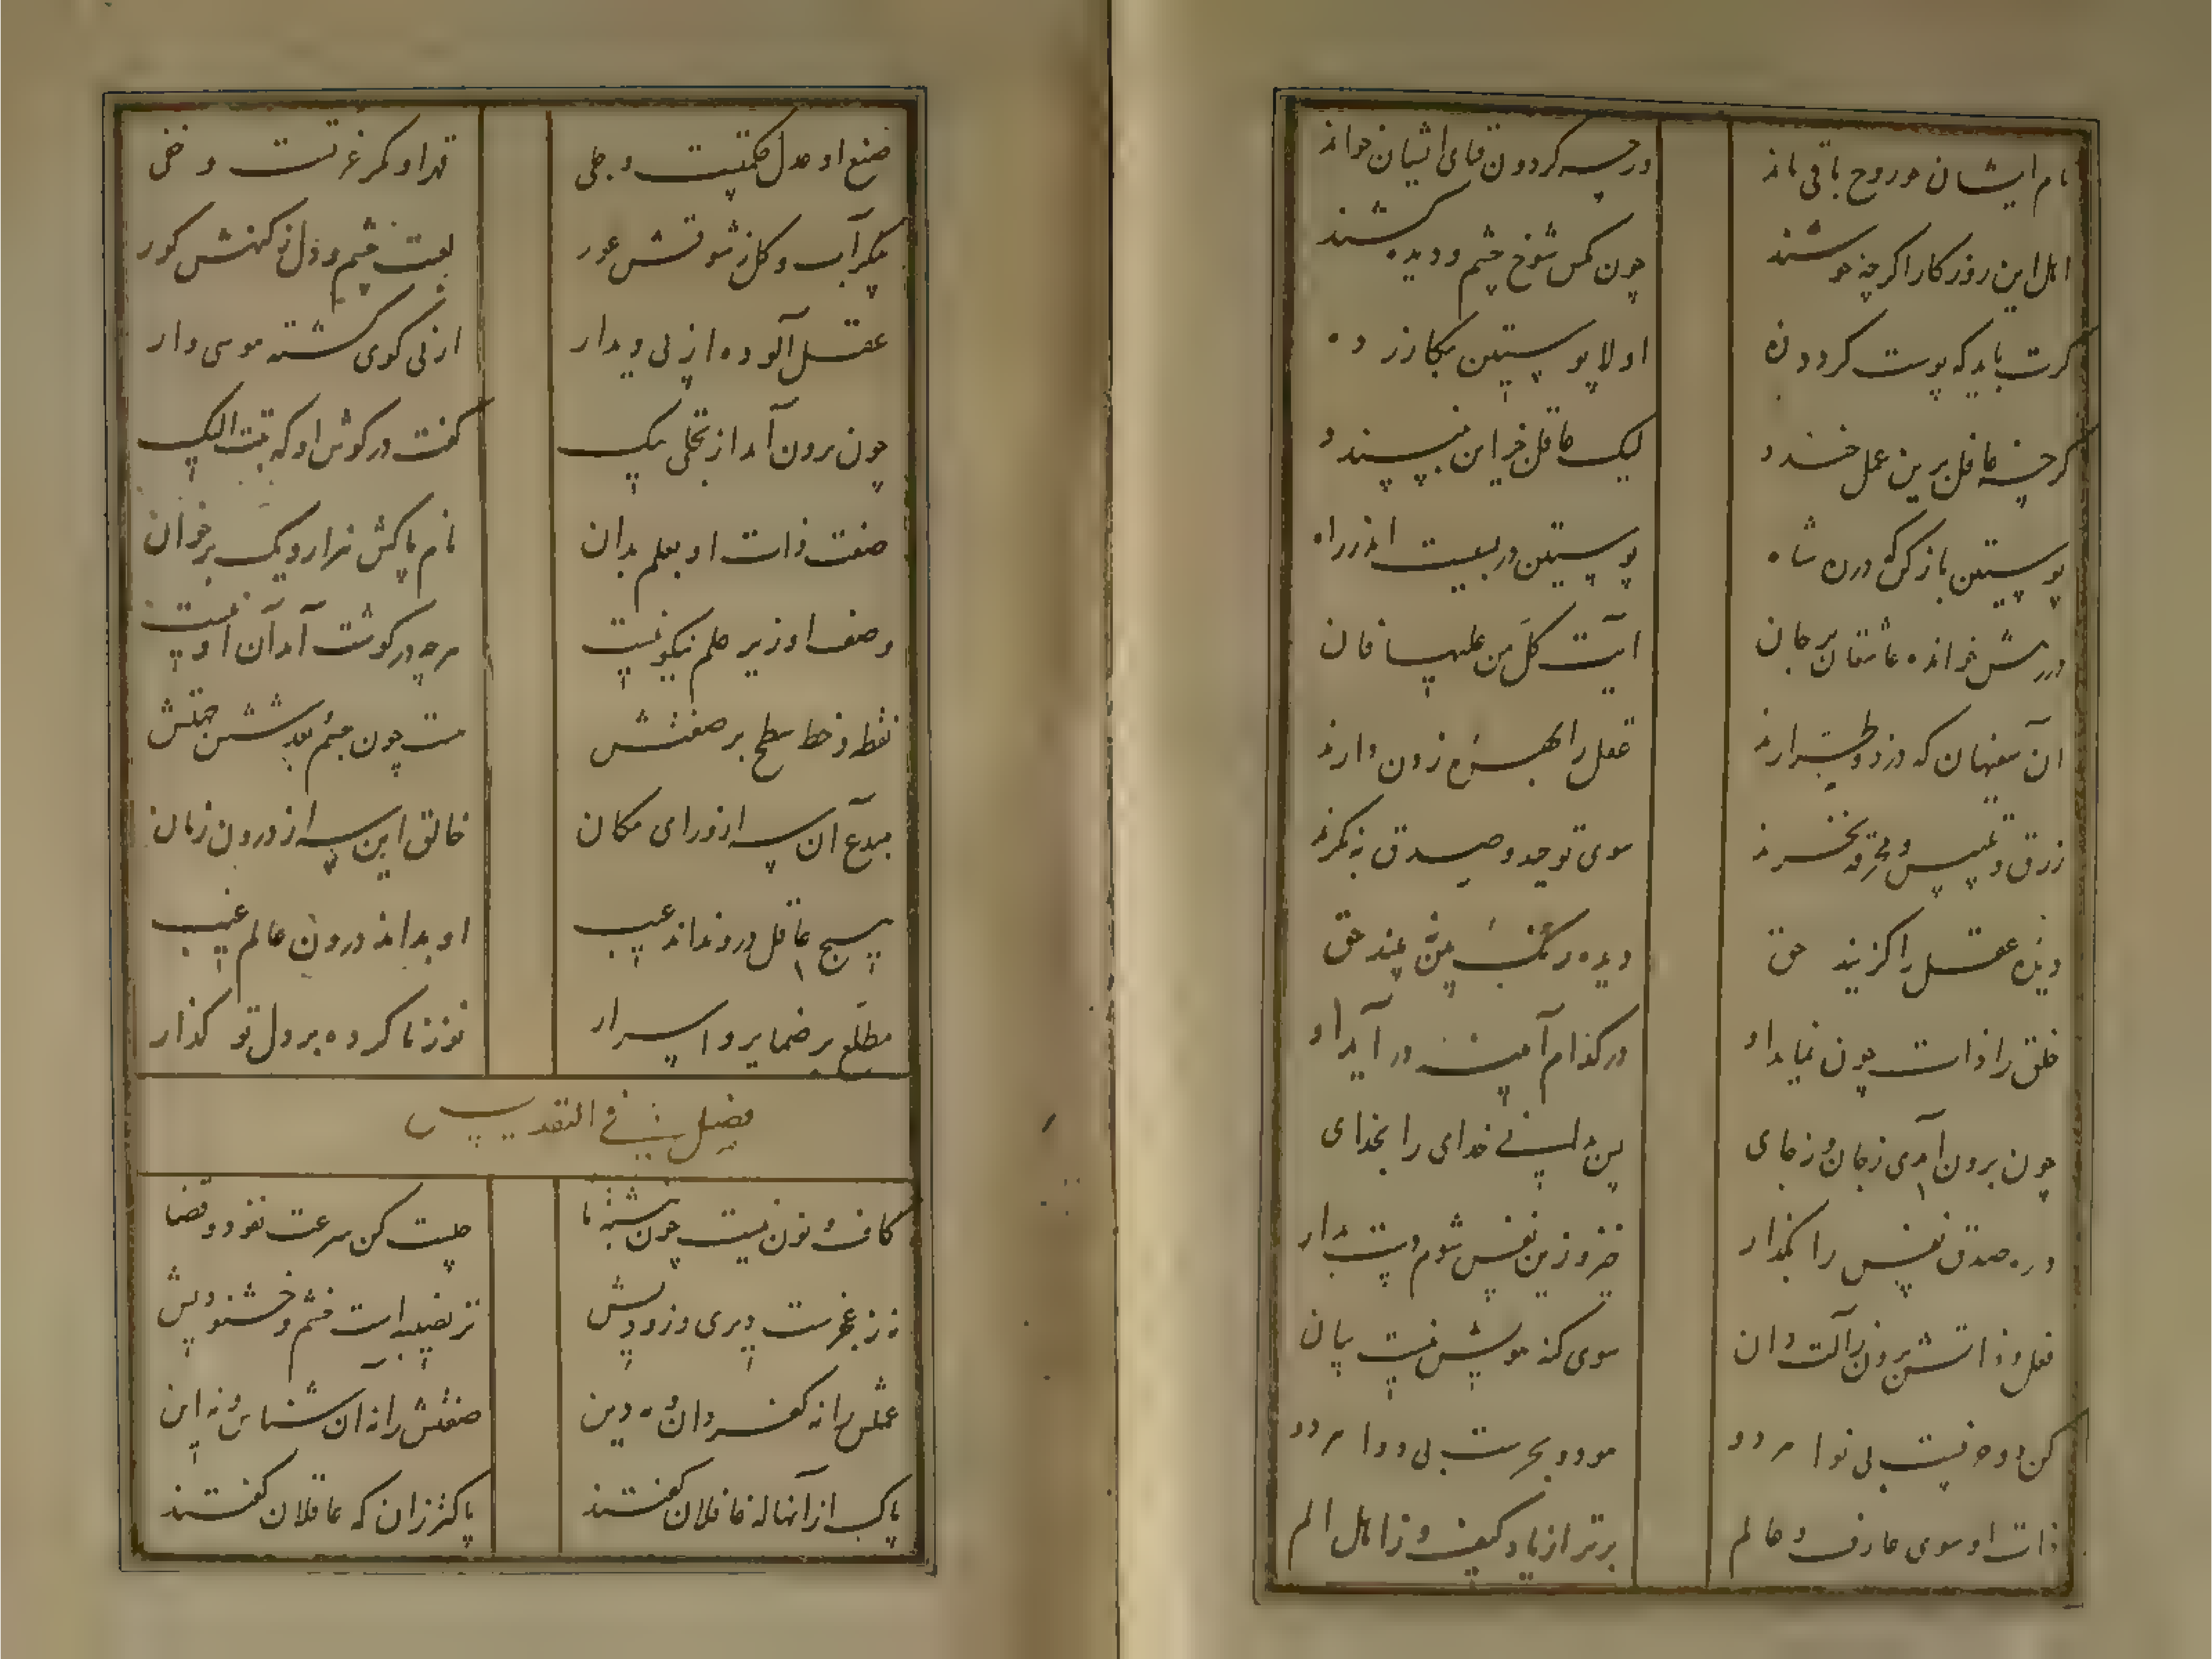 نام ایشان چو روح باقی ماند
ورچه گردون قبای ایشان خواند
اهل این روزگار اگرچه خوشند
چون مگس شوخ چشم و دیده کشند
گرت باید که پوست گردد زه
اولا پوستین بگازر ده
گرچه غافل برین عمل خندد
لیک عاقل جز این نپسندد
پوستین باز کن که در ره شاه
پوستین در بسیست اندر راه
بر جان
آیت کل من علیها فان
آن سفیهان که دزد و طرارند
عقل را بهر زدن دارند
زرق و تلبیس و مخرقه نخرند
سوی توحید و صدق به نگرند
دیده عقل را گزیند حق
دیده رنگ بین نبیند حق
خلق را ذات چون نماید او
در کدام آینه در آید او
چون برون آمدی ز جان و ز جای
پس ببینی خدای را بخدای
در ره صدق نفس را بگذار
خیز و زین نفس شوم دست بدار
فعل و ذاتش برون ز آلت دان
سوی که هویتش نیست بیان
کن دو حرفیست بی نوا هر دو
هو دو بحرست بی دوا هر دو
ذات او سوی عارف و عالم
برتر از یاد کیف و ز اهل الم
صنع او عدل حکمتست و جلی
قهر او مکر غرتست و خفی
پیکر آب و گل ز شوقش عور
لعبت چشم و دل ز کنهش کور
عقل آلوده از پی دیدار
ارنی گوی گشته موسی وار
چون برون آمد از تجلی پیک
گفت در گوش او که تبت الیک
صفت ذات او بعلم بدان
نام پاکش هزار و یک برخوان
وصف او زیر علم نیکو نیست
هرچه در گوشت آمد آن او نیست
نقطه و خط و سطح بر صفتش
هست چون جسم و بعد شش جهتش
مبدع آن سه از ورای مکان
خالق این سه از درون زمان
هیچ عاقل درو نداند عیب
او بداند درون عالم غیب
مطلع بر ضمایر و اسرار
نور ناکرده بر دل تو گذار
فصل فی التقدیس
کاف و نون نیست چون نبشته ما
چیست کن سرعت نفوذ و قضا
نه ز عجزست دیری و زودیش
نز نصیبه است خشم و خشنودیش
علتش را نه کفر دان و نه دین
صفتش را نه آن شناس و نه این
پاک از آنها که غافلان گفتند
پاکتر زان که عاقلان گفتند